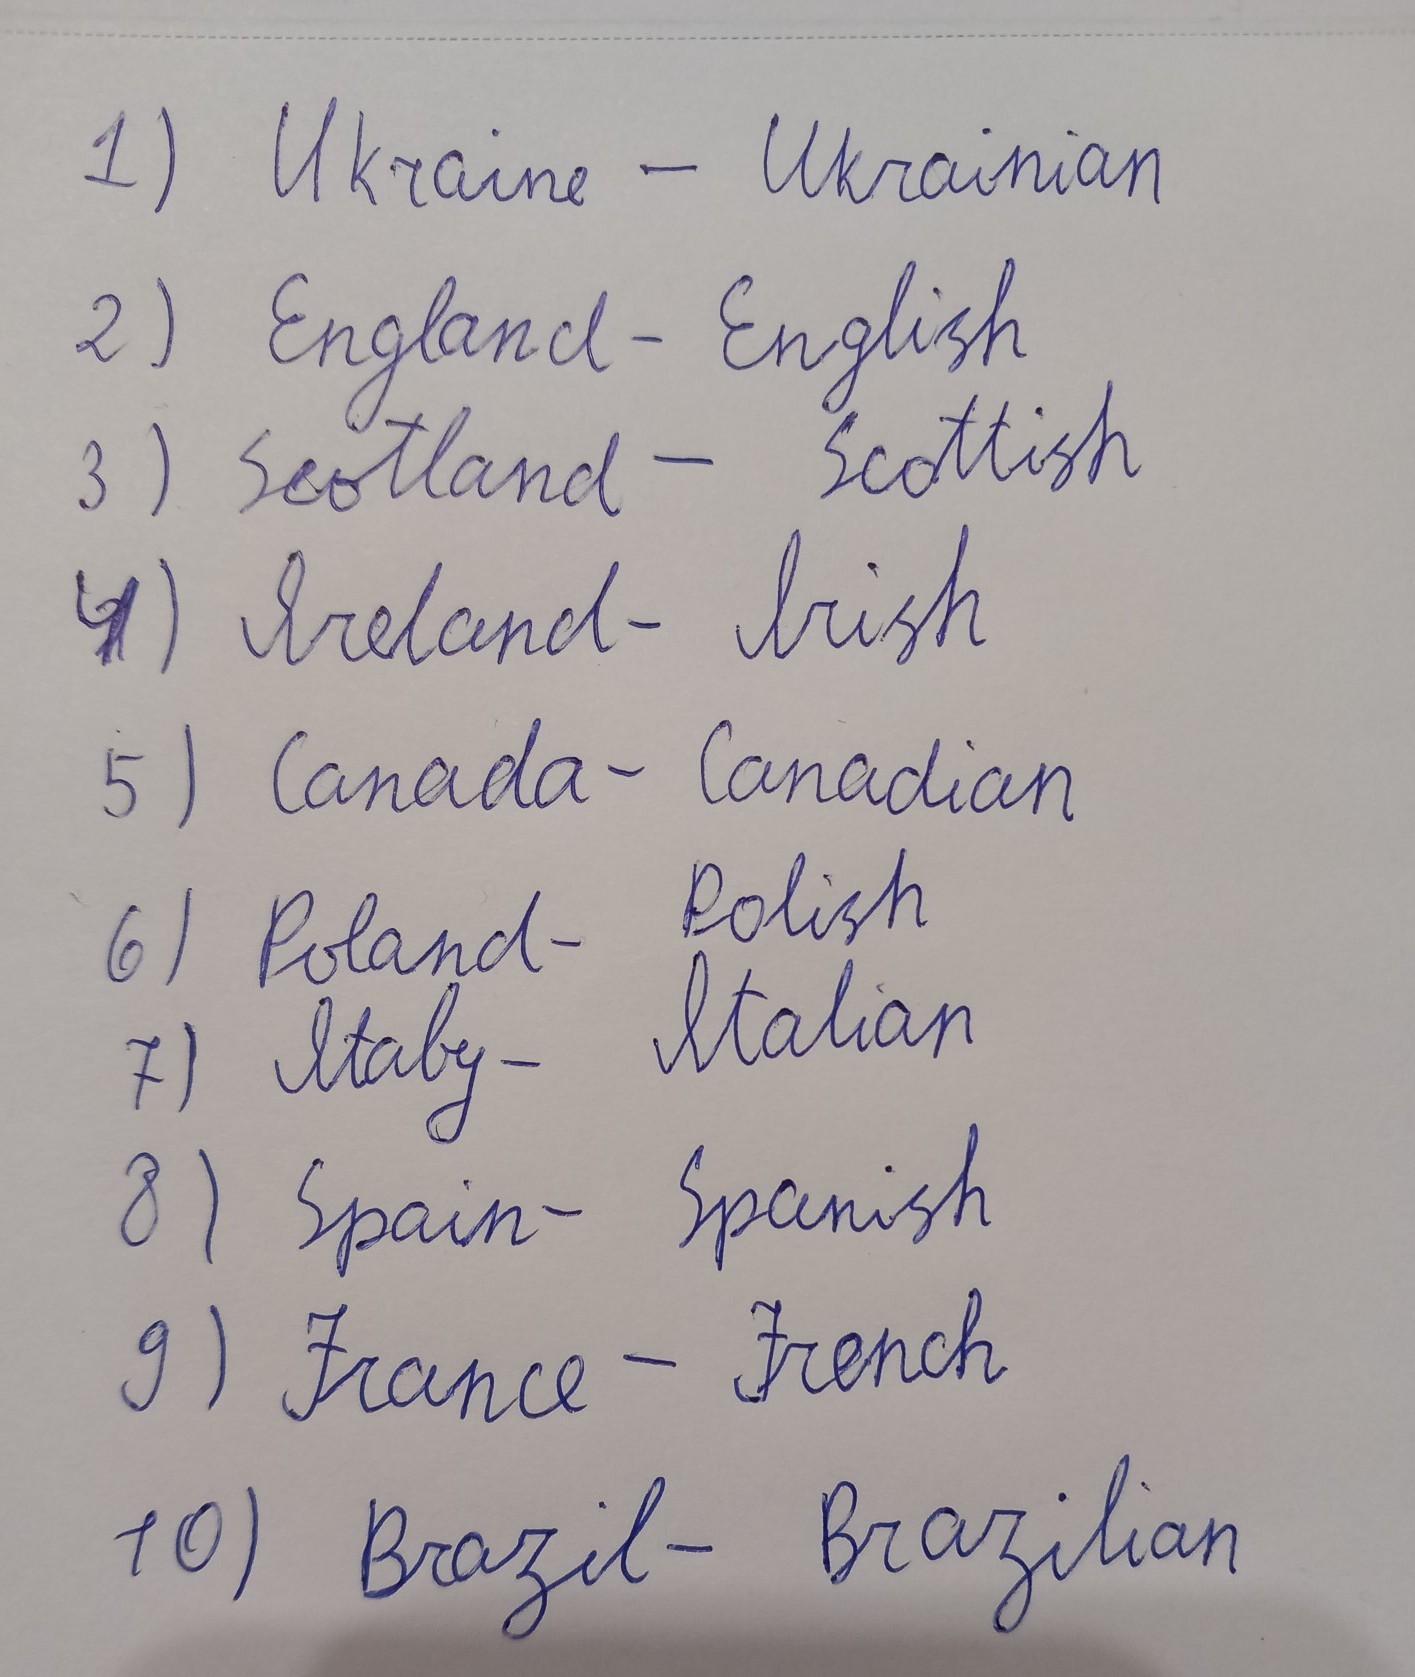 1) Ukraine - Ukrainian
2) England - English
3) Scotland - Scottish
4) Ireland - Irish
5) Canada - Canadian
6) Poland - Polish
7) Italy - Italian
8) Spain - Spanish
9) France - French
10) Brazil - Brazilian